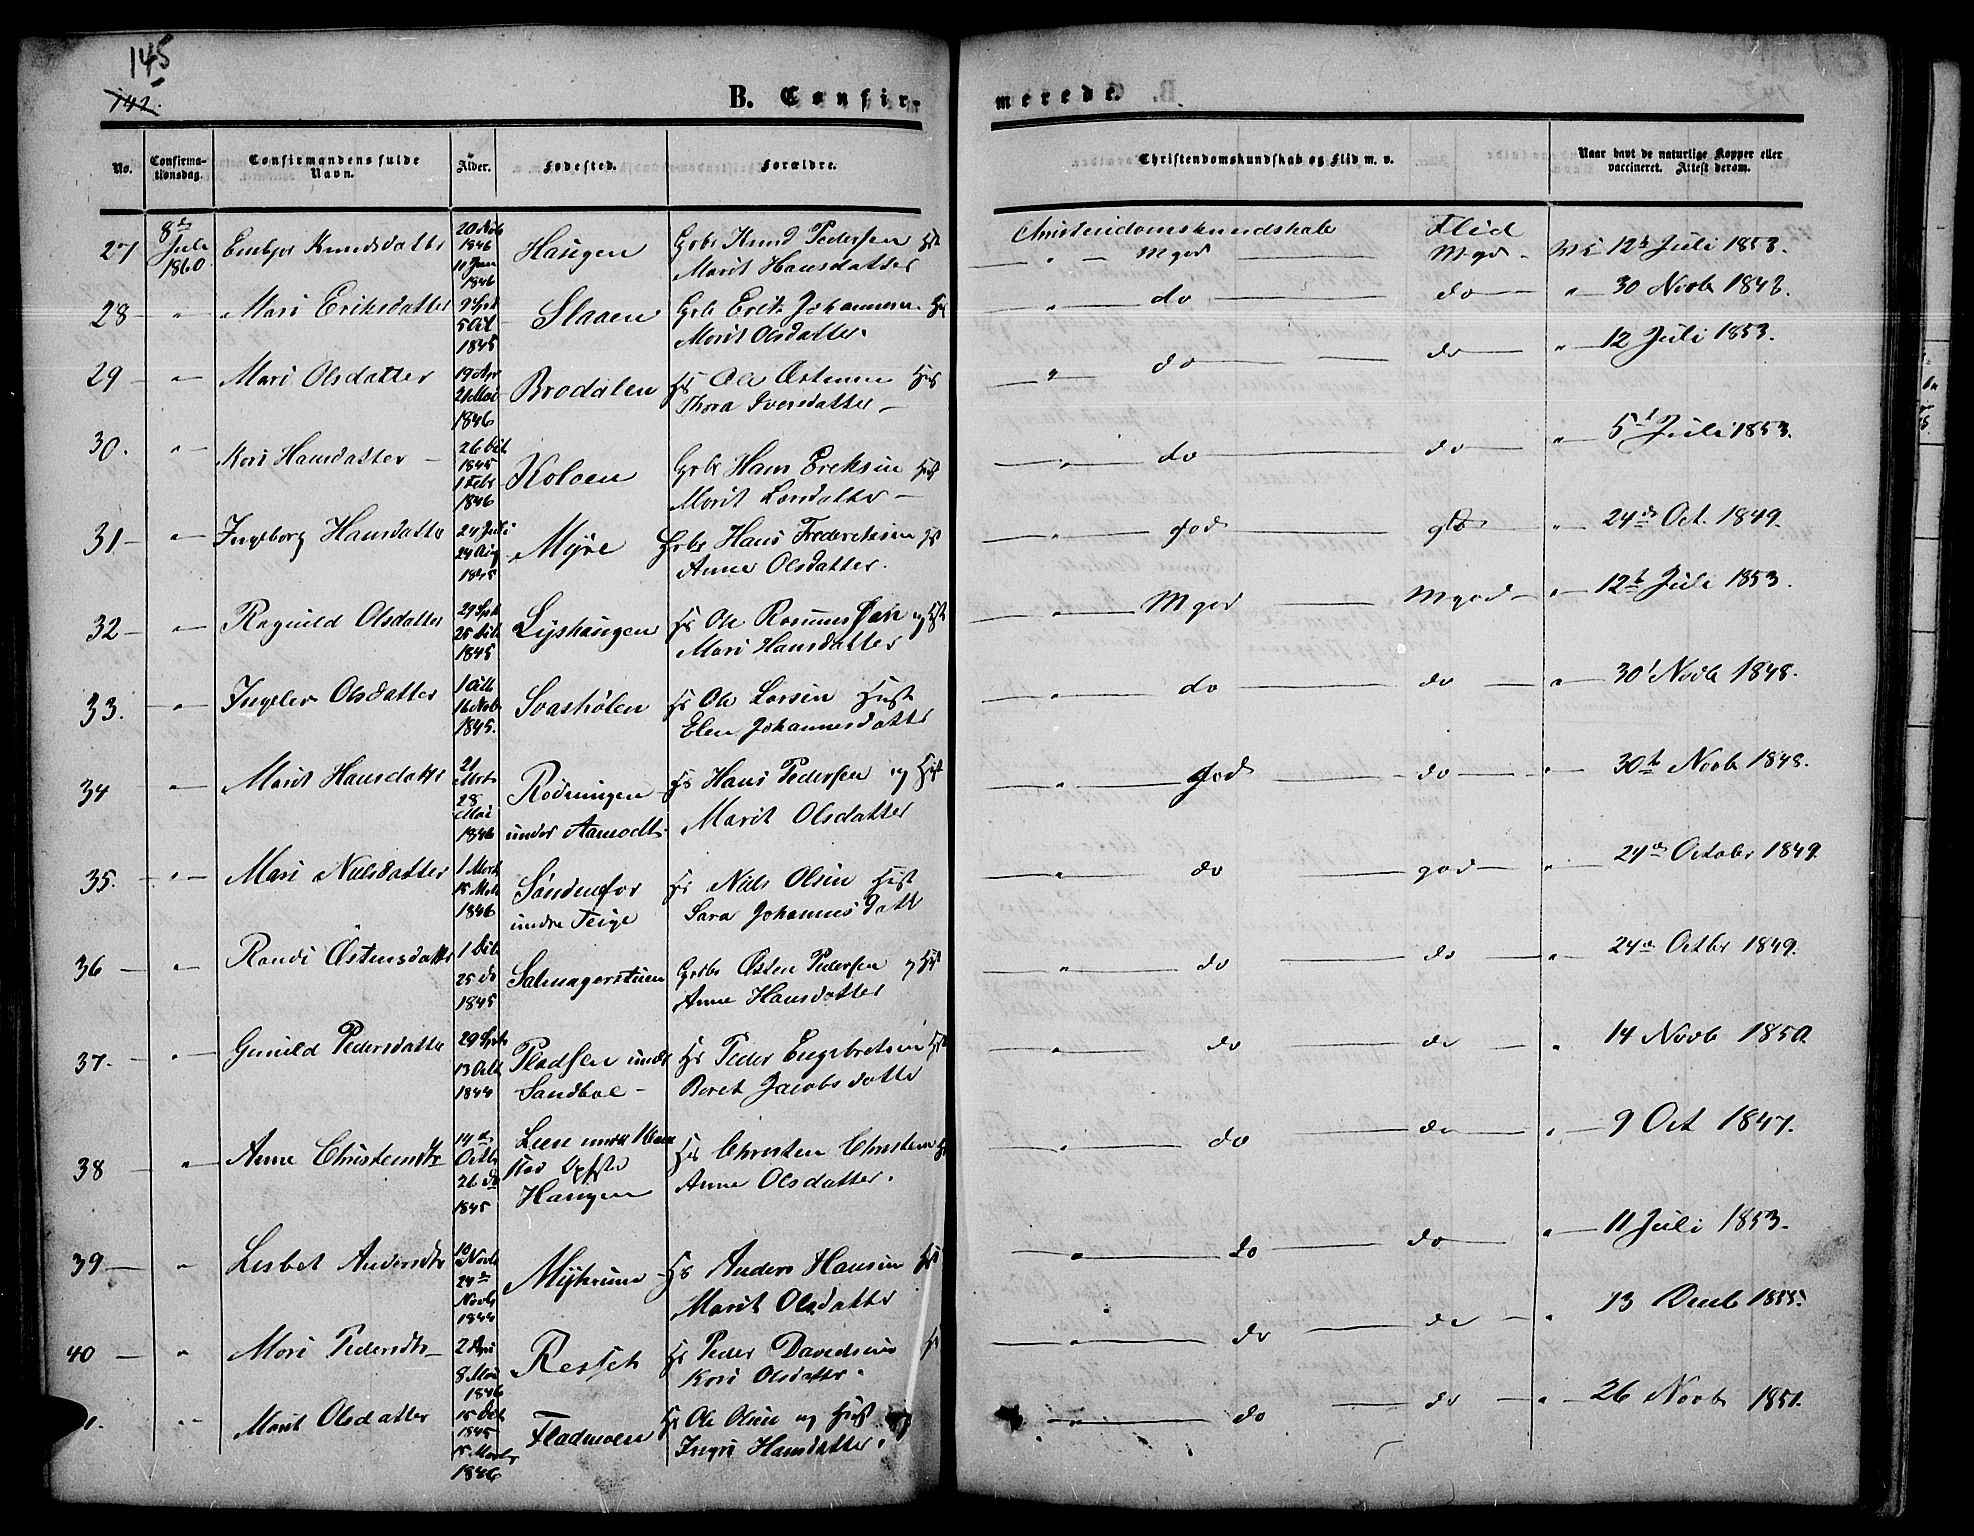 145
142.
B. Confir-
merede.
No.
Confirma-
tionsdag.
Confirmandens fulde
Navn.
Alder.
Fødested.
Forældre.
Christendomskundskab og Flid m. v.
Naar havt de naturlige Kopper eller
vaccineret. Attest derom.
27 8de Juli 1860. Embjør Knudsdatter 1846 1846 Haugen Gbr Knud Pedersen
Marit Hansdatter
Christendomskundskab Flid
Mgod Mgod 12te Juli 1853.
28 " Mari Eriksdatter 1845 Slaaen Gbr Erik Johannesen
Marit Olsdatter.
" do do " 30 Novb 1848.
29 " Mari Olsdatter 19 Apr 21 Mai 1846 Brodalen Hs Ole Østensen Hust
Thora Iversdatter
" do do " 12 Juli 1853.
30. " Kari Hansdatter 26 1845 1 Febr 1846 Koloen Gbr Hans Eriksen Hust
Marit Larsdatter
" do do " 5te Juli 1853.
31 " Ingeborg Hansdatter 24 Juli 24 Aug 1845 Myre Gbr Hans Frederiksen
Anne Olsdatter.
" god " 24de Oct. 1849.
32 " Ragnild Olsdatter 29 Sept 25 1845 Lyshaugen Hs Ole
Mari Hansdatter
" Mgod Mgod " 12te Juli 1853.
33. " Olsdatter 16 Novb 1845. Svashølen Hs Ole Larsen Hust
Elen Johannesdatter
" do do " 30 Novb 1848.
34 " Marit Hansdatter 21 Marts 28 Mai 1846 Rødningen
under Aamodt. Hs Hans Pedersen og Hust
Marit Olsdatter
" god do " 30te Novb 1848.
35. " Mari Nielsdatter 1 Marts 15 1846
Hs Niels Olsen Hust
Sara Johannesdatt
" do god " 24de October 1849.
36 " Randi Østensdatter 1 25 do 1845 Gbr Østen Pedersen og Hust
Anne Hansdatter
" do do " 24de Octbr 1849.
37. " Gunild Pedersdatter 29 Sept 13 Octb 1844 Pladsen under
Sandboe Hs Peder Engebretsen
Beret Jacobsdatter
" do do " 14 Novb 1850
38 " Anne Christensdtr 14de Octbr 26 do 1845
Haugen Hs Christen Christensen
Anne Olsdatter.
" do do " 9 Oct 1847.
39 " Lisbet Andersdtr 10 Novb 24de Novb 1844 Hs Anders Hansen
Marit Olsdatter
" do do " 11 Juli 1853.
40 " Mari Pedersdtr 8 Mai 1846 Hs Peder Davidsen
Kari Olsdatter.
" do do " 13 Decb 1855.
1. " Marit Olsdatter 15 1845 15 Marts 1846 Fladmoen Hs Ole Olsen og Hust
Ingri Hansdatter.
" do do " 26 Novb 1851.